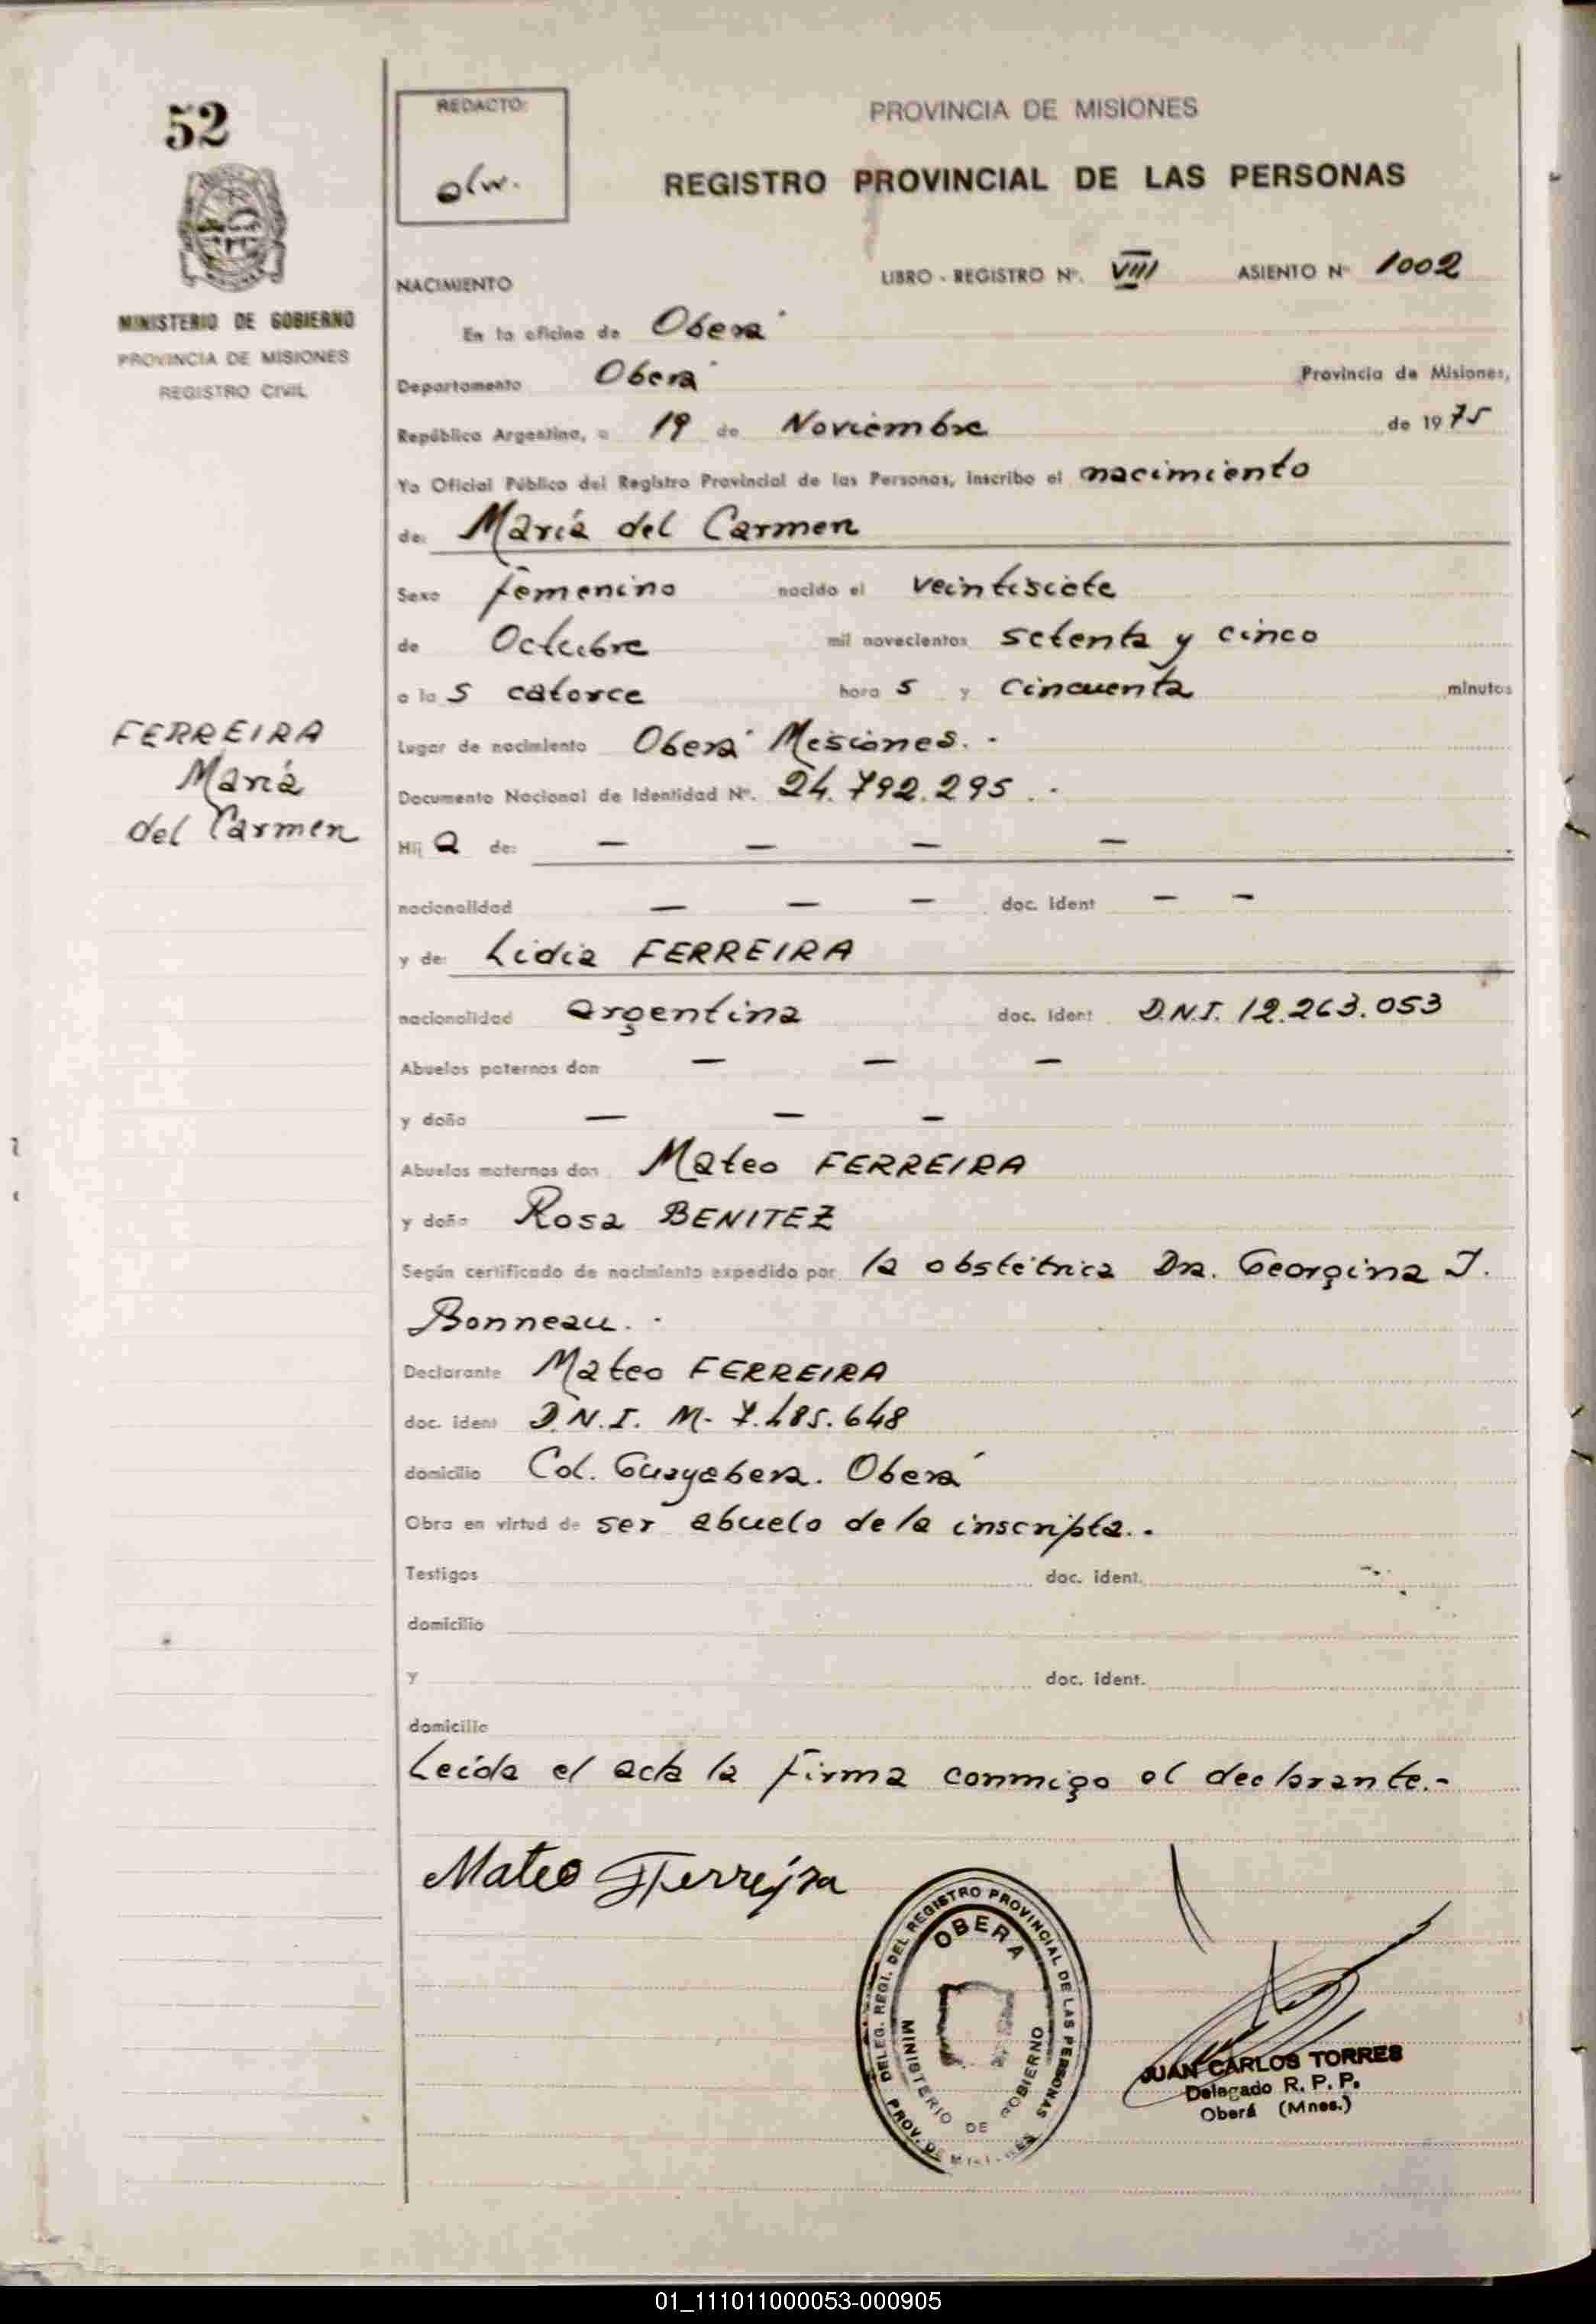 52
REDACTO:
PROVINCIA DE MISIONES
REGISTRO PROVINCIAL DE LAS PERSONAS
MINISTERIO DE GOBIERNO
PROVINCIA DE MISIONES
REGISTRO CIVIL
LIBRO - REGISTRO Nº. VIII ASIENTO Nº 1002
NACIMIENTO
En la oficina de Oberá
Departamento Oberá Provincia de Misiones,
República Argentina, a 19 de Noviembre de 1975
Yo Oficial Público del Registro Provincial de las Personas, inscribo el nacimiento
de: María del Carmen
Sexo femenino nacido el veintisiete
de Octubre mil novecientos setenta y cinco
a las catorce horas y cincuenta minutos
FERREIRA
María
del Carmen
Lugar de nacimiento Oberá Misiones. -
Documento Nacional de Identidad Nº. 24.792.295. -
Hija de: — — — —
nacionalidad — — — doc. ident — —
y de: Lidia FERREIRA
nacionalidad argentina doc. ident D.N.I. 12.263.053
Abuelos paternos don — — —
y doña — — —
Abuelos maternos don Mateo FERREIRA
y doña Rosa BENITEZ
Según certificado de nacimiento expedido por la obstétrica Dra. Georgina J.
Bonneau. -
Declarante Mateo FERREIRA
doc. ident D.N.I. M- 7.485.648
domicilio Col. Guayabera. Oberá
Obra en virtud de ser abuelo de la inscripta. -
Testigos doc. ident.
domicilio
y doc. ident.
domicilio
Leída el acta la firma conmigo el declarante.-
Mateo Ferreira
DELEG. REGI. DEL REGISTRO PROVINCIAL DE LAS PERSONAS
OBERA
MINISTERIO DE GOBIERNO
PROV. DE MISIONES
JUAN CARLOS TORRES
Delegado R. P. P.
Oberá (Mnes.)
01_111011000053-000905